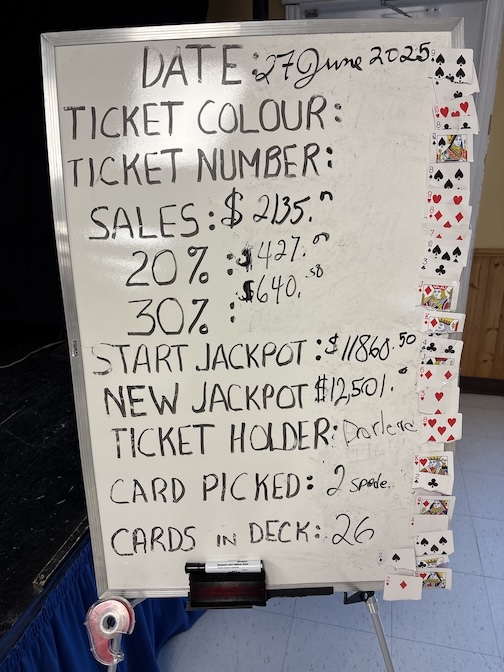 DATE: 27 June 2025
TICKET COLOUR:
TICKET NUMBER:
SALES: $ 2135.00
20% : $427.00
30% : $640.50
START JACKPOT: $11860.50
NEW JACKPOT $12,501.00
TICKET HOLDER: Darlene
CARD PICKED: 2 spade
CARDS IN DECK: 26